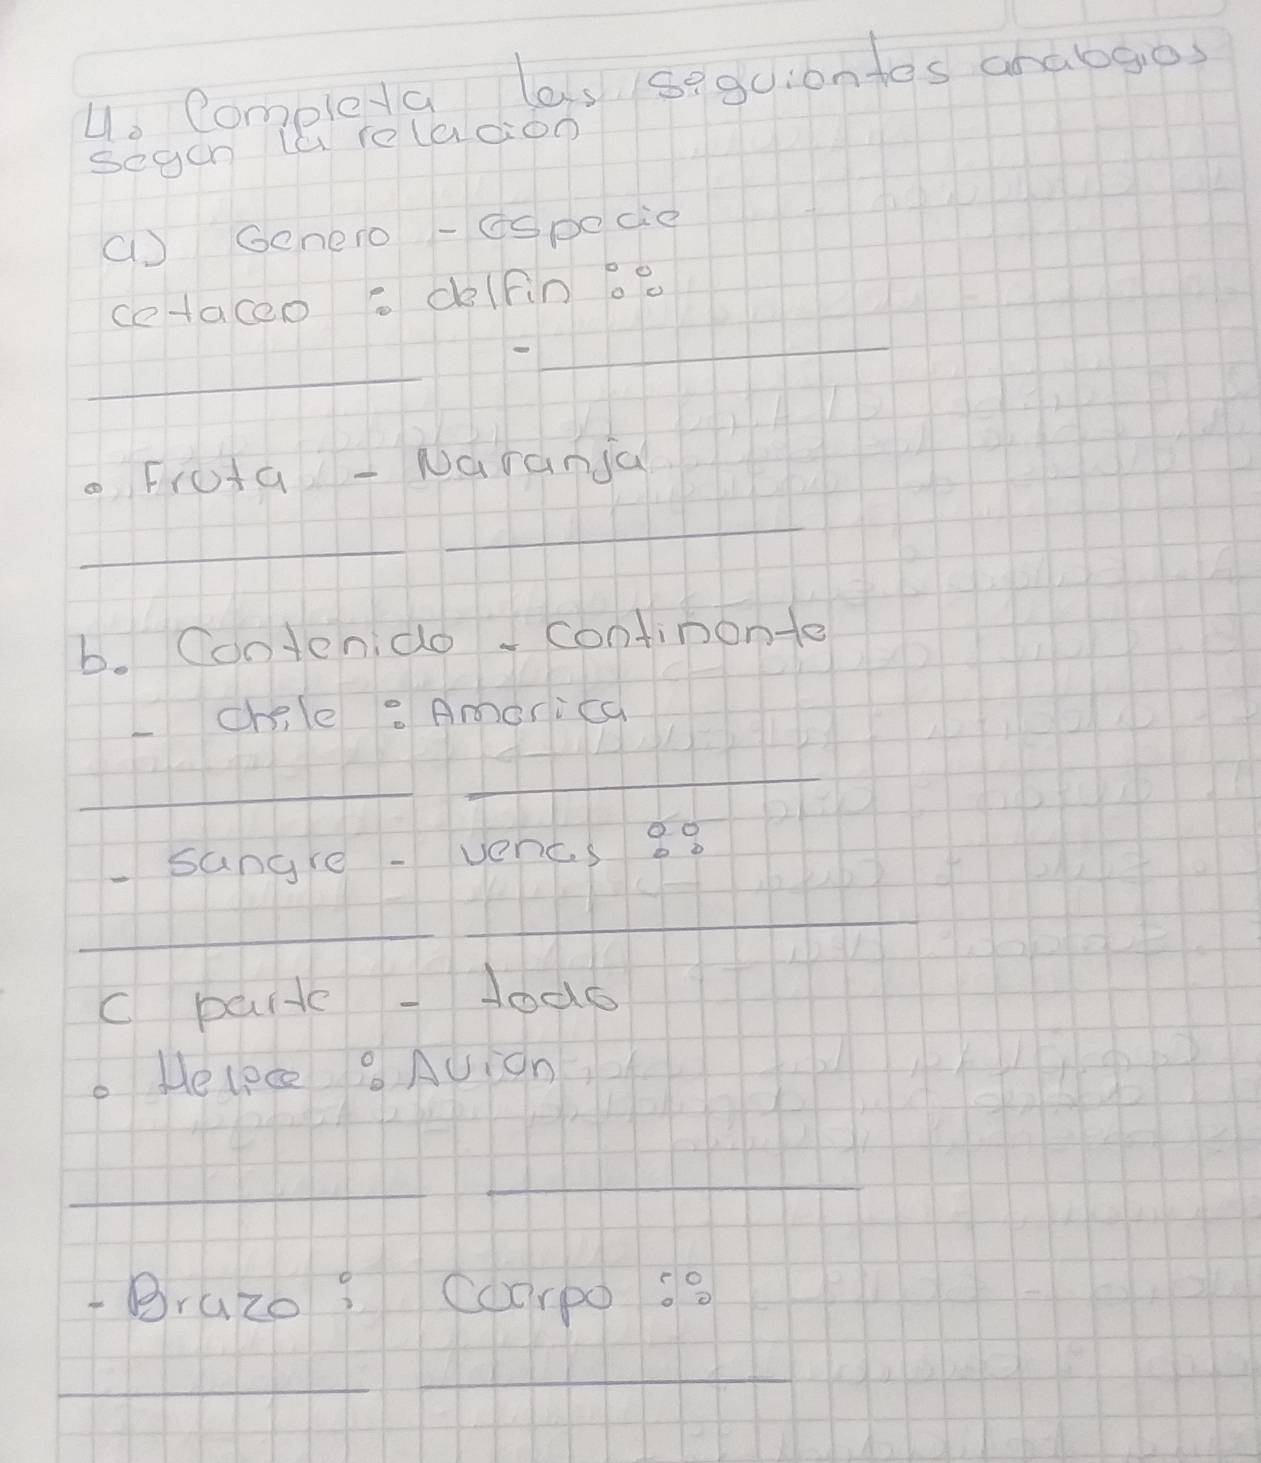 4. Completa las siguientes analogias
segun la relacion
a) Genero - especie
cetaceo : delfin ::
-
• Fruta - Naranja
b. Contenido - continente
- chile : America
- sangre - venas ::
C parte - todo
• Helice : Avion
- Brazo : Cuerpo ::